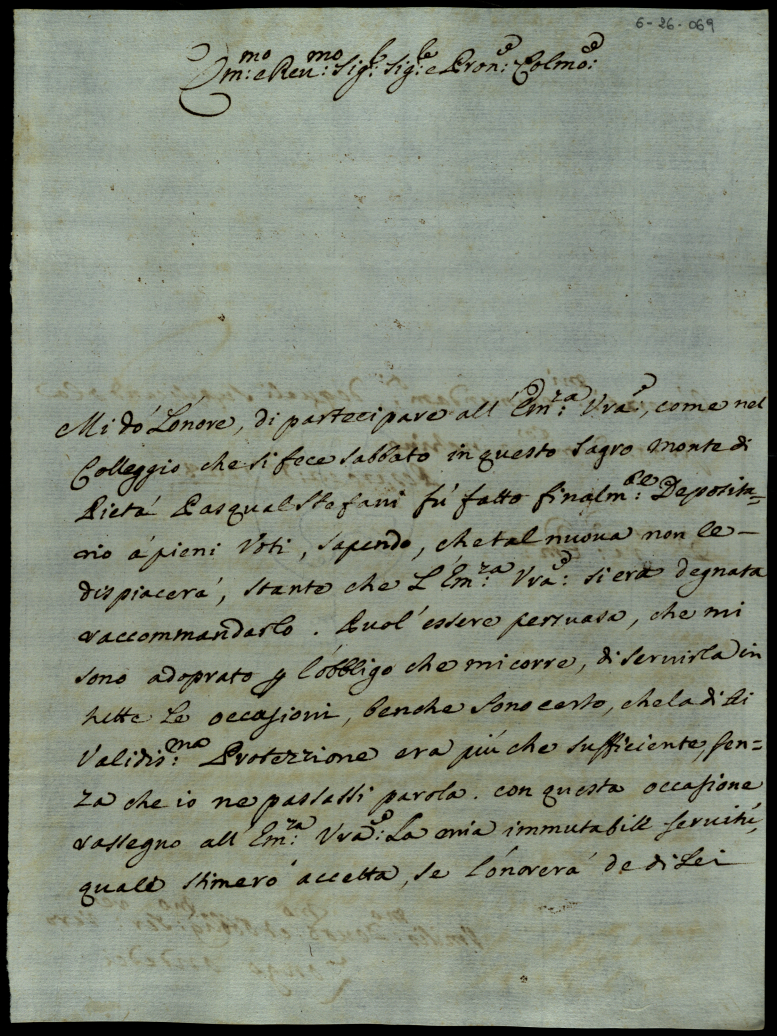 6-26-069
Em:mo e Reu:mo Sig:r Sig:re e Pron:e Colmo:
Mi dó L'onore, di partecipare all' Em:za Vra:, come nel
Colleggio che si fece sabbato in questo Sagro Monte di
Pietá Pasqual Stefani fú fatto finalm:te Deposita=
rio á pieni Voti, sapendo, che tal nuova non le
dispiacerá, stante che L'Em:za Vra: si era degnata
raccommandarlo. Puol' essere persuasa, che mi
sono adoprato p l'obbligo che mi corre, di servirla in
tutte Le occasioni, benche sono certo, che la di Lei
Validis:ma Protezzione era piú che sufficiente, sen=
za che io ne passassi parola. con questa occasione
rassegno all' Em:za Vra: La mia immutabile servitú,
quale stimeró accetta, se l'onorerá de di Lei